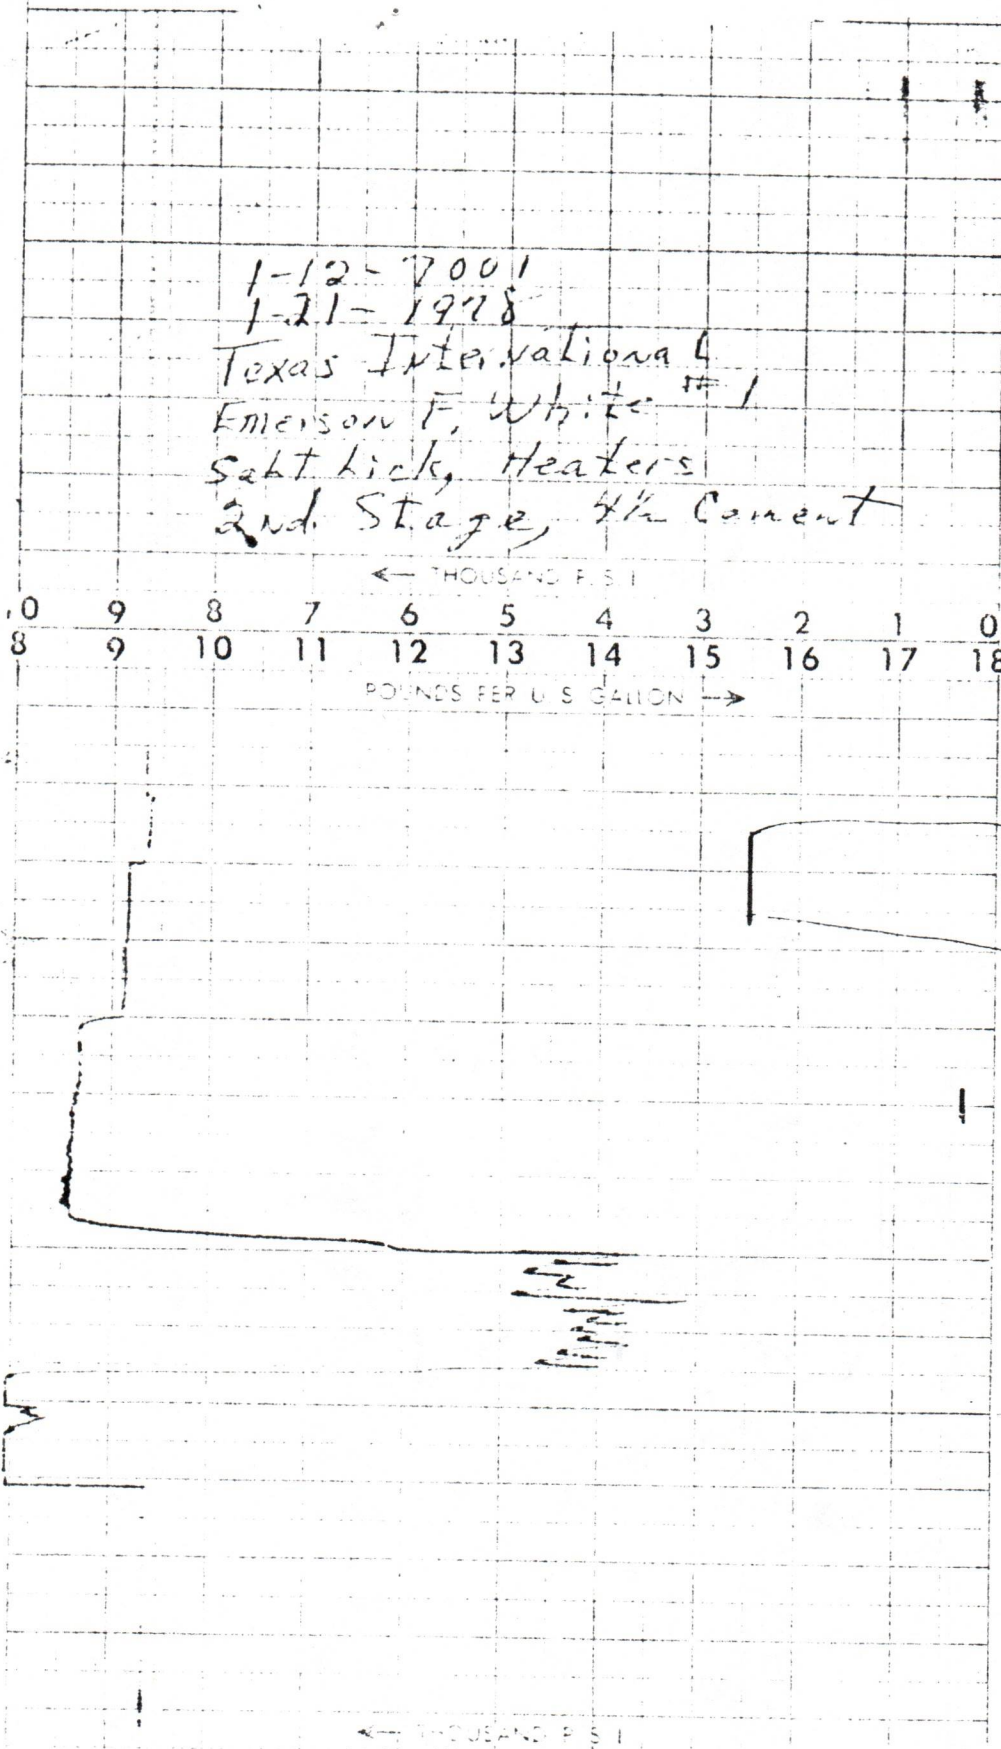 1-12-7001
1-21-1978
Texas International
Emerson F. White #1
Salt Lick, Heaters
2nd. Stage, 4½ Cement
← THOUSAND P. S. I.
10 9 8 7 6 5 4 3 2 1 0
8 9 10 11 12 13 14 15 16 17 18
POUNDS PER U. S. GALLON →
← THOUSAND P. S. I.